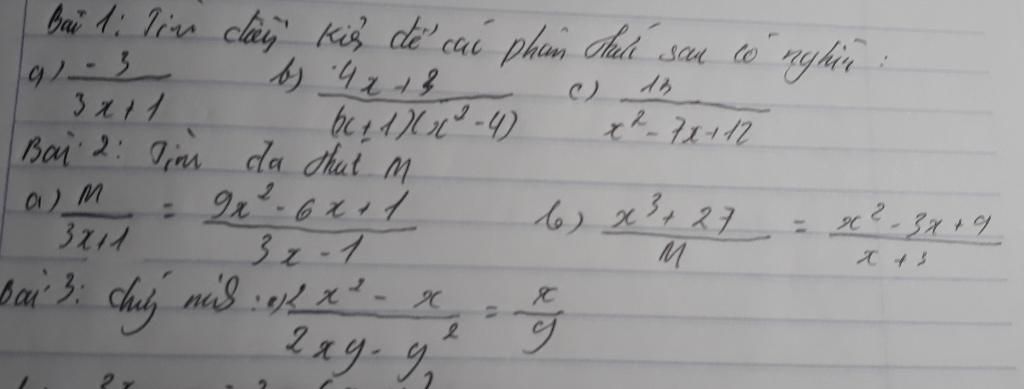 Bài 1: Tìm điều kiện để các phân thức sau có nghĩa:
a) -3/(3x+1) b) (4x+3)/((x+1)(x²-4)) c) 13/(x²-7x+12)
Bài 2: Tìm đa thức M
a) M/(3x+1) = (9x²-6x+1)/(3x-1) b) (x³+27)/M = (x²-3x+9)/(x+3)
Bài 3: a) (2x²-x)/(2xy-y²) = x/y